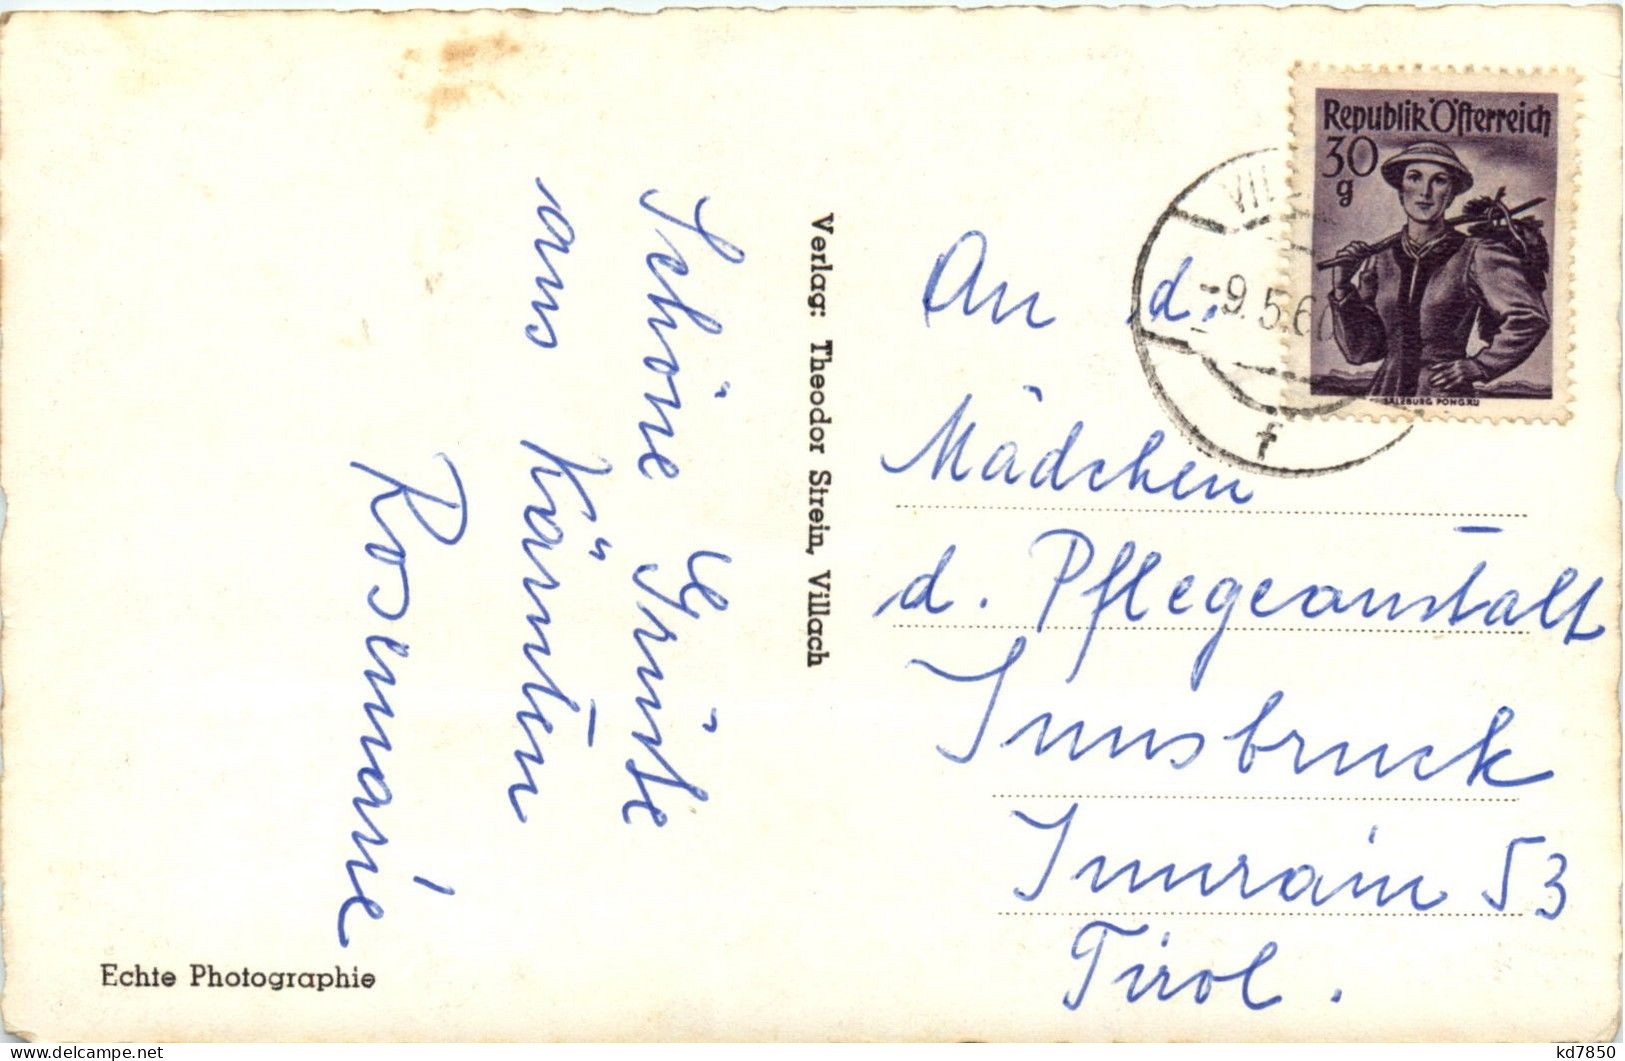 Schöne Grüße
aus Kärnten
Rosemarie
Echte Photographie
Verlag: Theodor Strein, Villach
Republik Österreich
30
g
SALZBURG PONGAU
-9.5.6
f
An d.
Mädchen
d. Pflegeanstalt
Innsbruck
Innrain 53
Tirol.
kd7850